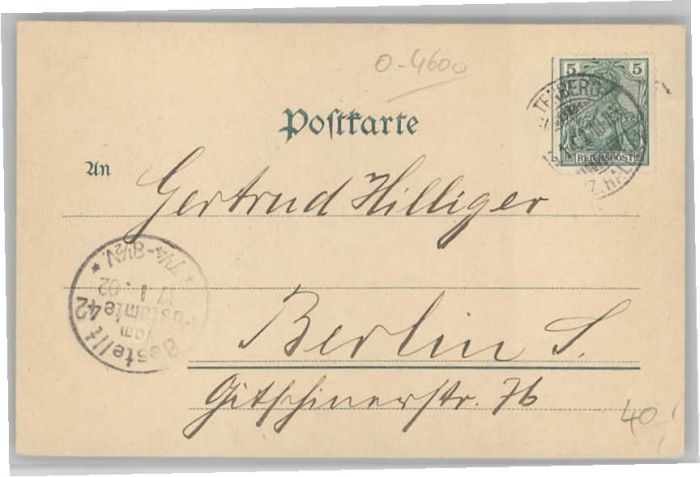 0-4600
5 5
REICHSPOST
Postkarte
An
Gertrud Hilliger
Berlin S.
Gitschinerstr. 76
40,-
Bestellt
vom
Postamte 42
17 1 02
* 7¼-8½V. *